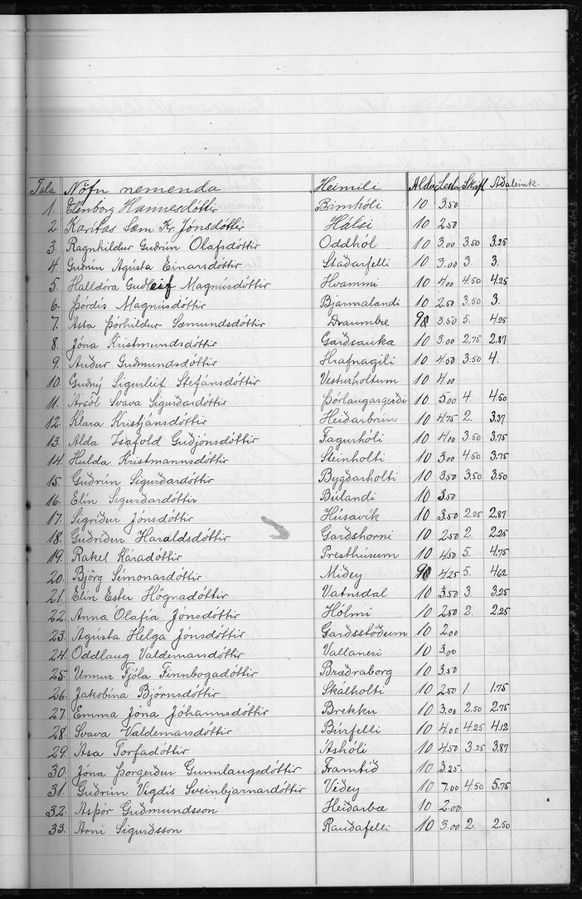 Tala Nöfn nemenda Heimili Aldur Lestur Skrift Aðaleink.
1. Elinborg Hannesdóttir Brimhóli 10 3.50
2. Karitas Sæm Kr. Jónsdóttir Hálsi 10 2.50
3. Ragnhildur Guðrún Olafsdóttir Oddhól 10 3.00 3.50 3.25
4. Guðrún Agústa Einarsdóttir Staðarfelli 10 3.00 3. 3.
5. Halldóra Guðleif Magnúsdóttir Hvammi 10 4.00 4.50 4.25
6. Þórdís Magnúsdóttir Bjarmalandi 10 2.50 3.50 3.
7. Asta Þórhildur Sæmundsdóttir Draumbæ 9 3.50 5. 4.25
8. Jóna Kristmundsdóttir Garðsauka 10 3.00 2.75 2.87
9. Auður Guðmundsdóttir Hrafnagili 10 4.50 3.50 4.
10. Guðný Sigurleif Stefánsdóttir Vesturholtum 10 4.00
11. Arsól Svava Sigurðardóttir Þórlaugargerði 10 5.00 4 4.50
12. Klara Kristjánsdóttir Heiðarbrún 10 4.75 2. 3.37
13. Alda Isafold Guðjónsdóttir Fagurhóli 10 4.00 3.50 3.75
14. Hulda Kristmannsdóttir Steinholti 10 3.00 4.50 3.75
15. Guðrún Sigurðardóttir Bygðarholti 10 3.50 3.50 3.50
16. Elín Sigurðardóttir Búlandi 10 3.50
17. Sigríður Jónsdóttir Húsavík 10 3.50 2.25 2.87
18. Guðríður Haraldsdóttir Garðshorni 10 2.50 2. 2.25
19. Rakel Káradóttir Presthúsum 10 4.50 5. 4.75
20. Björg Símonardóttir Miðey 9 4.25 5. 4.62
21. Elín Ester Högnadóttir Vatnsdal 10 3.50 3 3.25
22. Anna Olafía Jónsdóttir Hólmi 10 2.50 2. 2.25
23. Agústa Helga Jónsdóttir Garðsstöðum 10 2.00
24. Oddlaug Valdemarsdóttir Vallanesi 10 3.00
25. Unnur Fjóla Finnbogadóttir Bræðraborg 10 3.50
26. Jakobína Björnsdóttir Skálholti 10 2.50 1. 1.75
27. Emma Jóna Jóhannsdóttir Brekku 10 3.00 2.50 2.75
28. Svava Valdemarsdóttir Búrfelli 10 4.00 4.25 4.12
29. Asa Torfadóttir Ashóli 10 4.50 3.25 3.87
30. Jóna Þorgerður Gunnlaugsdóttir Framtíð 10 3.25
31. Guðrún Vigdís Sveinbjarnardóttir Viðey 10 7.00 4.50 5.75
32. Asþór Guðmundsson Heiðarbæ 10 2.00
33. Arni Sigurðsson Rauðafelli 10 3.00 2. 2.50